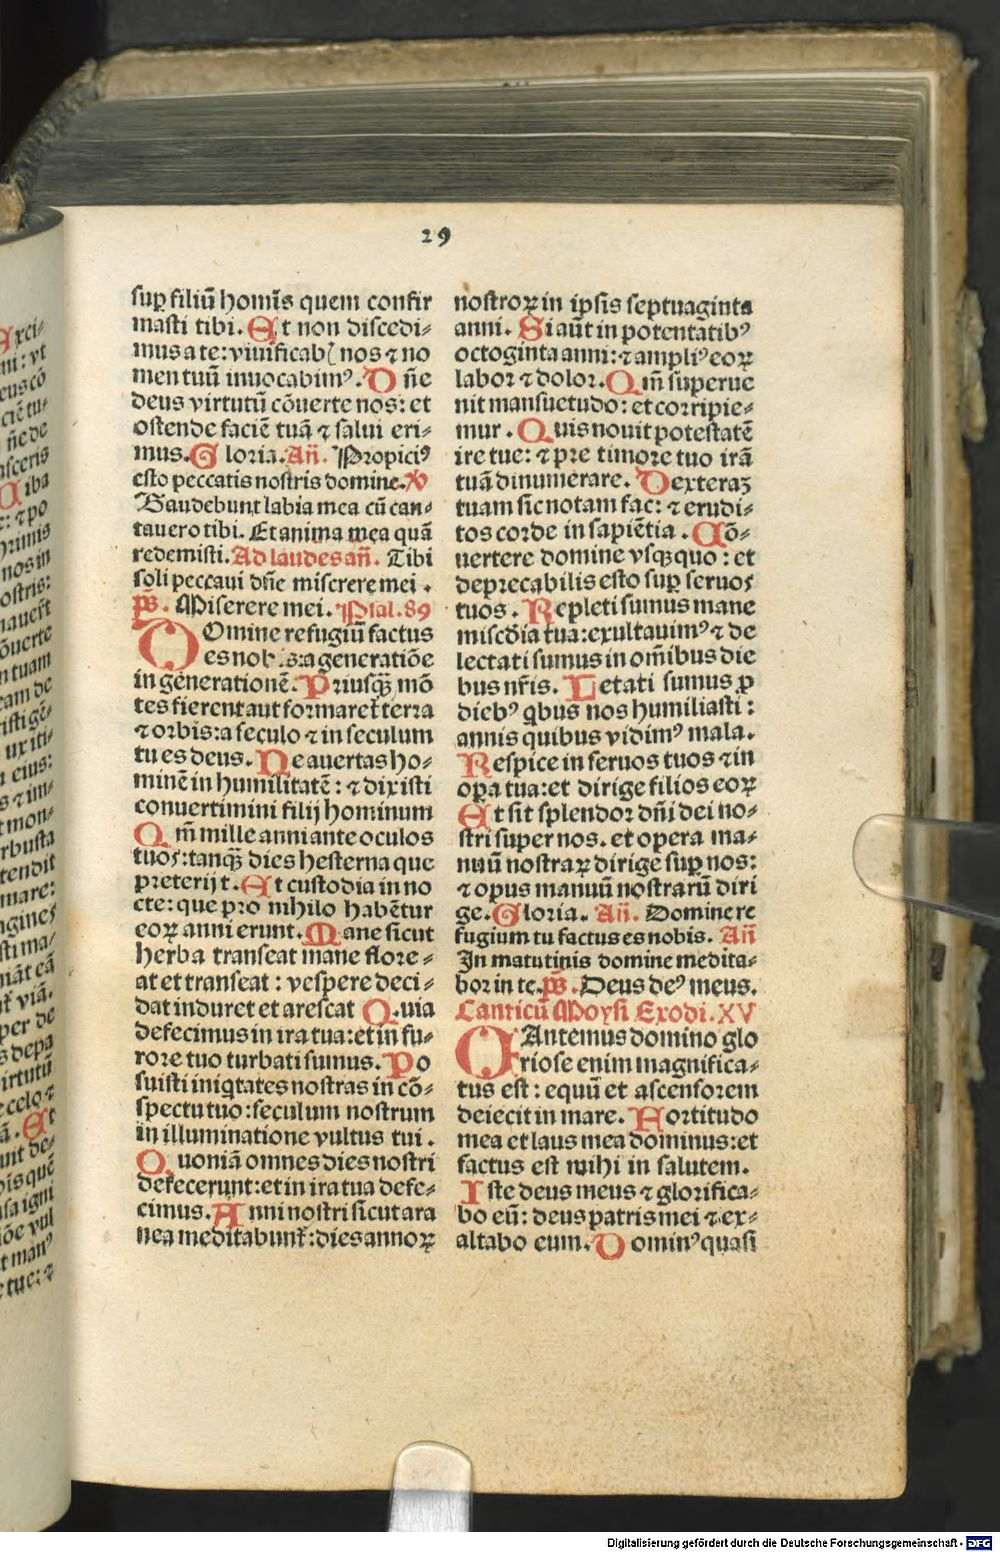 29
sup̱ filiũ homĩs quem confir
masti tibi. Et non discedi⸗
mus a te: viuificab̃ nos ⁊ no
men tuũ inuocabimꝰ. D ñe
deus virtutũ cõuerte nos: et
ostende faciẽ tuã ⁊ salui eri⸗
mus. Gloria. Añ. Propiciꝰ
esto peccatis nostris domine. ℣
Gaudebunt labia mea cũ can⸗
tauero tibi. Et anima mea quã
redemisti. Ad laudes añ. Tibi
soli peccaui dñe miserere mei .
p̃s. Miserere mei. Psal. 89
DOmine refugiũ factus
es nobis: a generatiõe
in generationẽ. Priusq̃ mõ
tes fierent aut formaret̃ terra
⁊ orbis: a seculo ⁊ in seculum
tu es deus. Ne auertas ho⸗
minẽ in humilitatẽ: ⁊ dixisti
conuertimini filij hominum
Qm̃ mille anni ante oculos
tuos: tanq̃ dies hesterna que
preterijt. Et custodia in no
cte: que pro nihilo habẽtur
eoꝝ anni erunt. Mane sicut
herba transeat mane flore⸗
at et transeat: vespere deci⸗
dat induret et arescat Quia
defecimus in ira tua: et in fu⸗
rore tuo turbati sumus. Po
suisti iniq̇tates nostras in cõ⸗
spectu tuo: seculum nostrum
in illuminatione vultus tui.
Quoniã omnes dies nostri
defecerunt: et in ira tua defe⸗
cimus. Anni nostri sicut ara
nea meditabunt̃: dies annoꝝ
nostroꝝ in ipsis septuaginta
anni. Si aũt in potentatibꝰ
octoginta anni: ⁊ ampliꝰ eoꝝ
labor ⁊ dolor. Qm̃ superue
nit mansuetudo: et corripie⸗
mur. Quis nouit potestatẽ
ire tue: ⁊ pre timore tuo irã
tuã dinumerare. Dexteraꝫ
tuam sic notam fac: ⁊ erudi⸗
tos corde in sapiẽtia. Cõ⸗
uertere domine vsq̃quo: et
deprecabilis esto sup̱ seruos
tuos. Repleti sumus mane
misc̃dia tua: exultauimꝰ ⁊ de
lectati sumus in om̃ibus die
bus nr̃is. Letati sumus ꝓ
diebꝰ q̇bus nos humiliasti:
annis quibus vidimꝰ mala.
Respice in seruos tuos ⁊ in
oꝑa tua: et dirige filios eoꝝ
Et sit splendor dñi dei no⸗
stri super nos. et opera ma⸗
nuũ nostraꝝ dirige sup̱ nos:
⁊ opus manuũ nostrarũ diri
ge. Gloria. Añ. Domine re
fugium tu factus es nobis. Añ
In matutinis domine medita⸗
bor in te. p̃s. Deus deꝰ meus.
Canticũ Moysi Exodi. XV
CAntemus domino glo
riose enim magnifica⸗
tus est: equũ et ascensorem
deiecit in mare. Fortitudo
mea et laus mea dominus: et
factus est mihi in salutem.
Iste deus meus ⁊ glorifica⸗
bo eũ: deus patris mei ⁊ ex⸗
altabo eum. Dominꝰ quasi
Digitalisierung gefördert durch die Deutsche Forschungsgemeinschaft - DFG